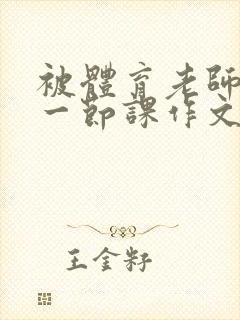 被體育老師
一節課作文
王金籽